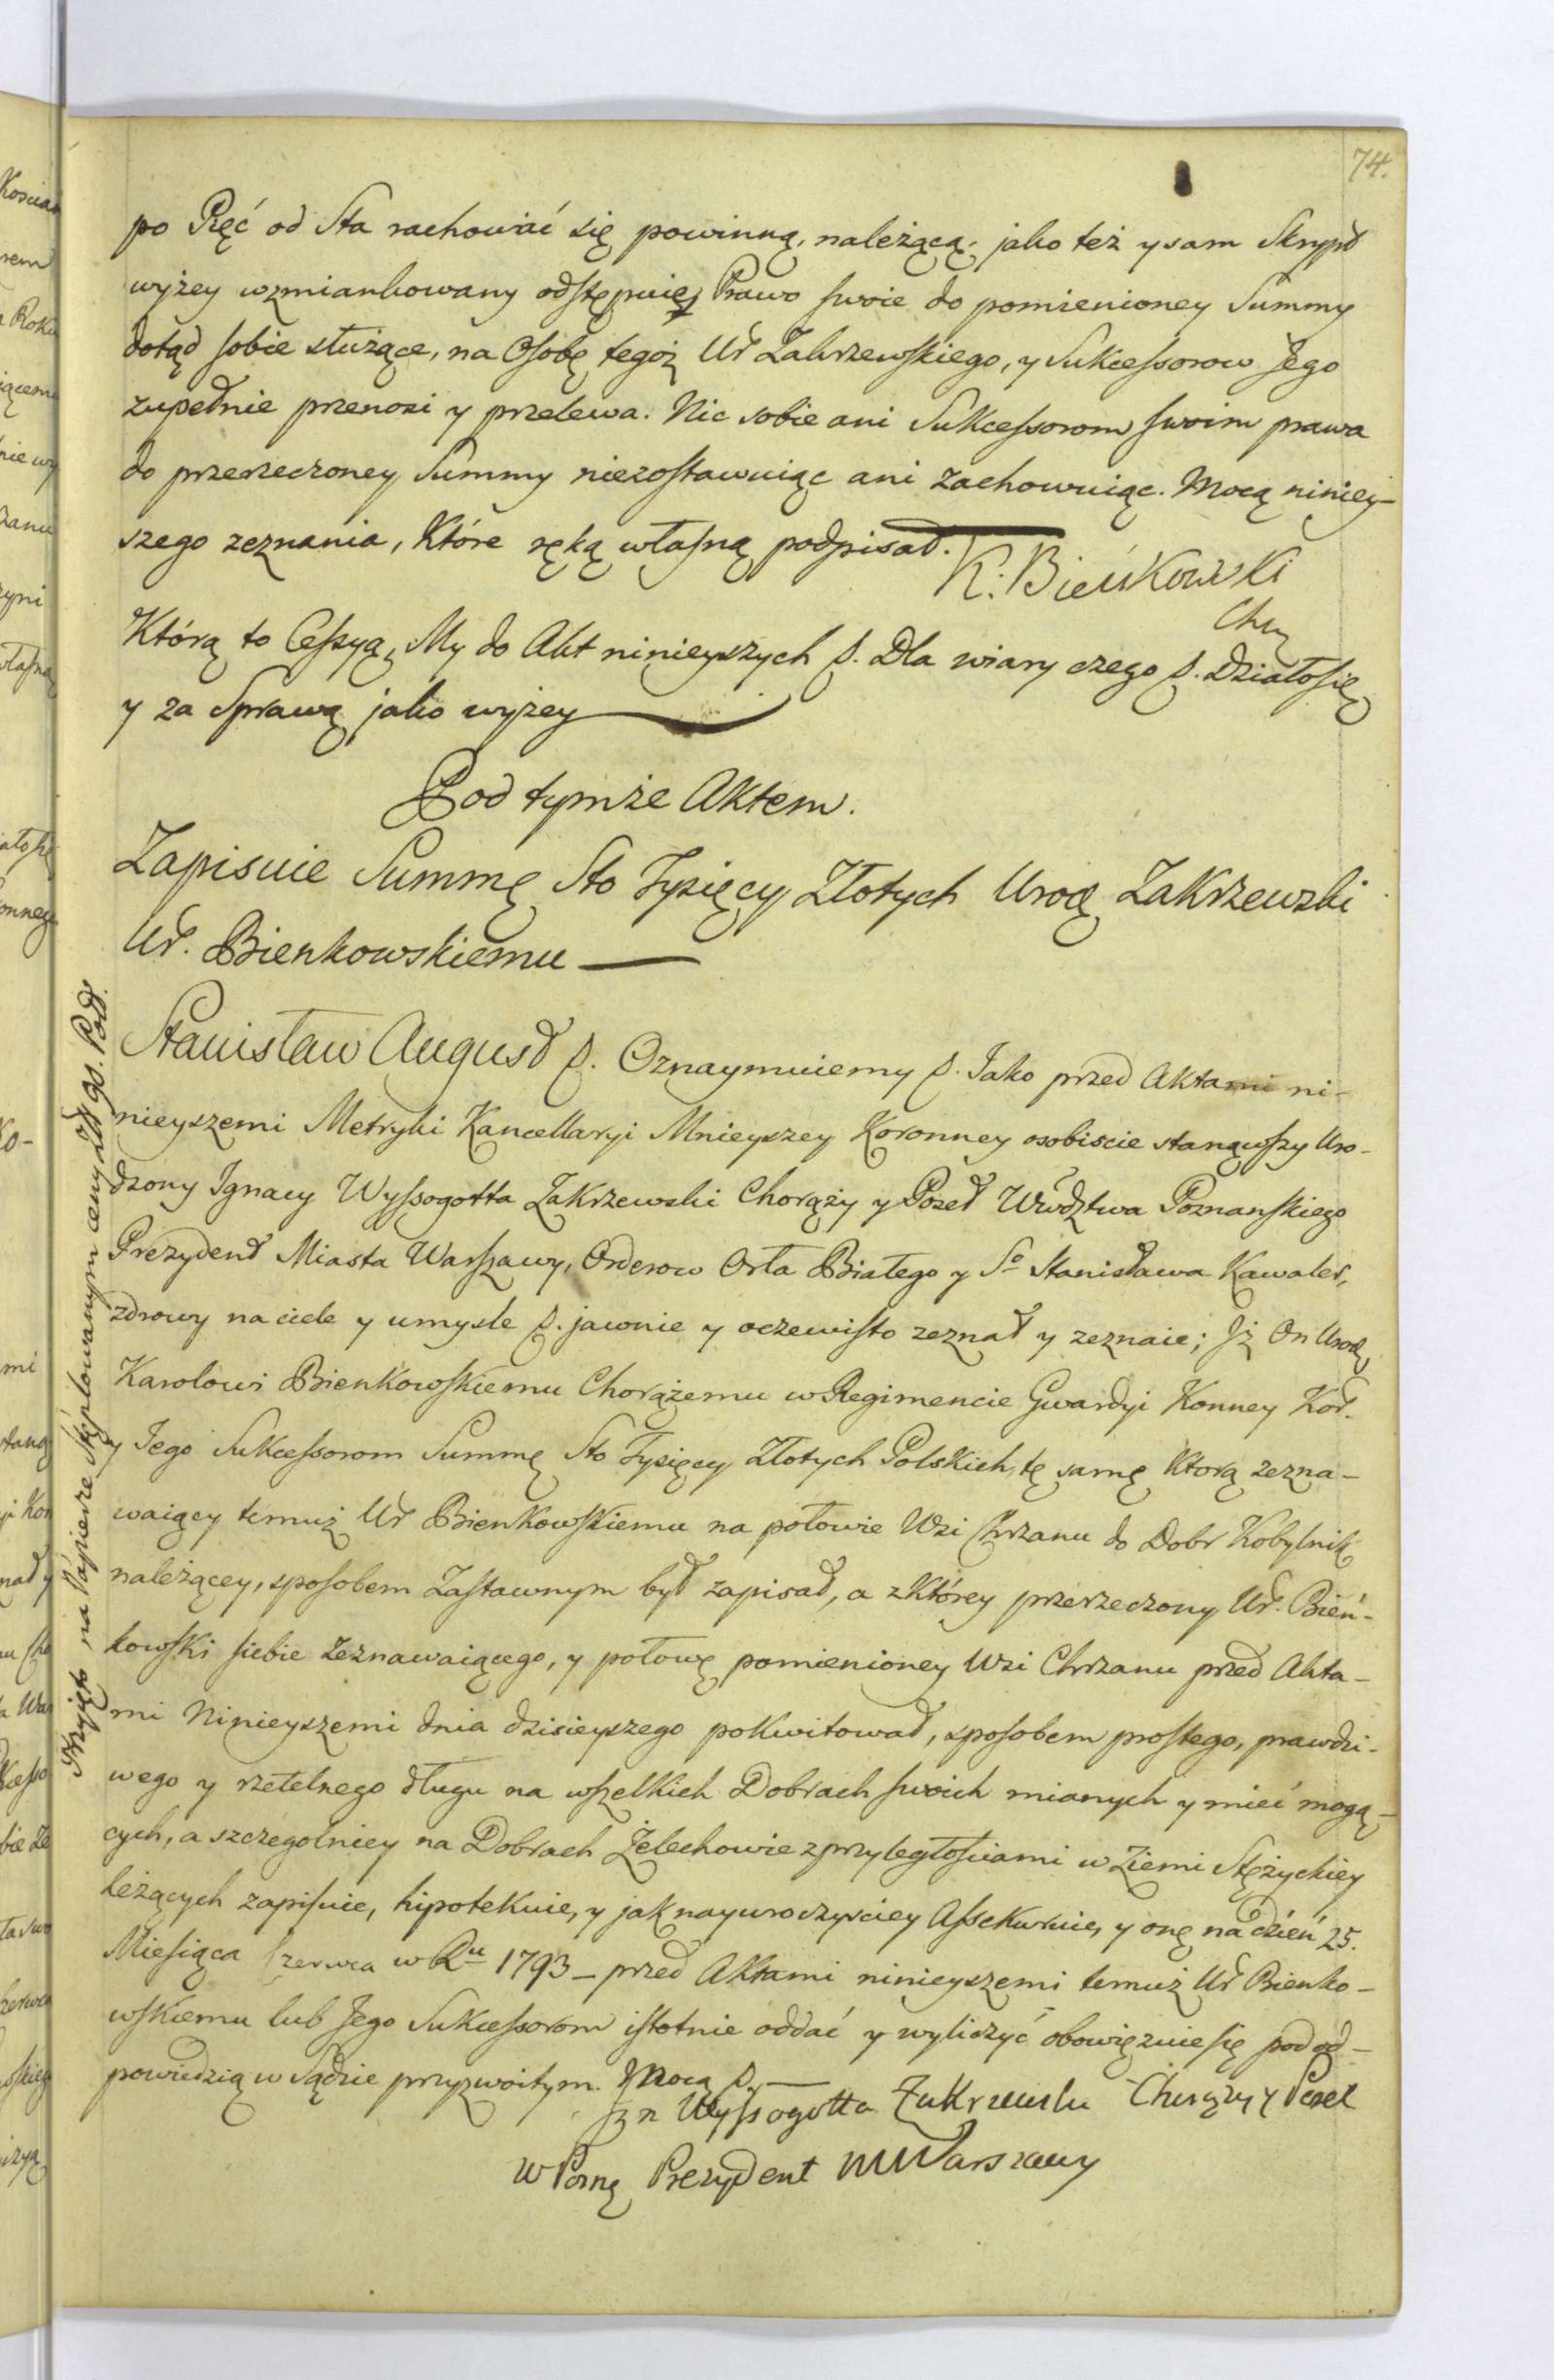 74.
po Pięć od Sta rachować się powinną, należącą; jako też y sam Skrypt
wyżey wzmiankowany odstępuię, Prawo swoie do pomienioney Summy
dotąd sobie służące, na Osobę tegoż Ur Zakrzewskiego, y Sukcessorow Jego
zupełnie przenosi y przelewa. Nic sobie ani Sukcessorom swoim prawa
do przerzeczoney Summy niezostawuiąc ani zachowuiąc. Mocą niniey-
szego zeznania, Które ręką własną podpisał.
K: Bieńkowski
Chrży
Którą to Cessyą, My do Akt ninieyszych p. Dla wiary czego p. Działo się
y za Sprawą jako wyżey
Pod tymże Aktem.
Zapisuie Summę Sto Tysięcy Złotych Urodz Zakrzewski
Ur. Bienkowskiemu
Stanisław August p. Oznaymuiemy p. Jako przed Aktami ni-
nieyszemi Metryki Kancellaryi Mnieyszey Koronney osobiscie stanąwszy Uro-
dzony Ignacy Wyssogotta Zakrzewski Chorąży y Poseł Wwdztwa Poznanskiego
Prezydent Miasta Warszawy, Orderow Orła Białego y Sgo Stanisława Kawaler,
zdrowy na ciele y umysle p. jawnie y oczewisto zeznał y zeznaie; Jż On Urodz
Karolowi Bienkowskiemu Chorążemu w Regimencie Gwardyi Konney Kor.
y Jego Sukcessorom Summę Sto Tysięcy Złotych Polskich, tę samę Ktorą zezna-
waiący temuż Ur Bienkowskiemu na połowie Wsi Chrzanu do Dobr Kobylnik
należącey, sposobem Zastawnym był zapisał, a z Którey przerzeczony Ur. Bień-
kowski siebie Zeznawaiącego, y połowę pomienioney Wsi Chrzanu przed Akta-
mi Ninieyszemi dnia dzisieyszego pokwitował, sposobem prostego, prawdzi-
wego y rzetelnego długu na wszelkich Dobrach swoich mianych y mieć mogą-
cych, a szczegolniey na Dobrach Żelechowie z przyległościami w Ziemi Stężyckiey
leżących zapisuie, hipotekuie, y jak nayuroczyściey Assekuruie, y onę na dzień 25.
Miesiąca Czerwca w Ru 1793 – przed Aktami ninieyszemi temuż Ur Bienko-
wskiemu lub Jego Sukcessorom istotnie oddać y wyliczyć obowięzuie się pod od-
powiedzią w Sądzie przyzwoitym. Mocą p.
Jgn Wyssogotta Zakrzewski Chorąży y Poseł
W Pozn Prezydent M Warszawy
Przyięto na Papierze Sztęplowanym ceny Złł gs. Pod.